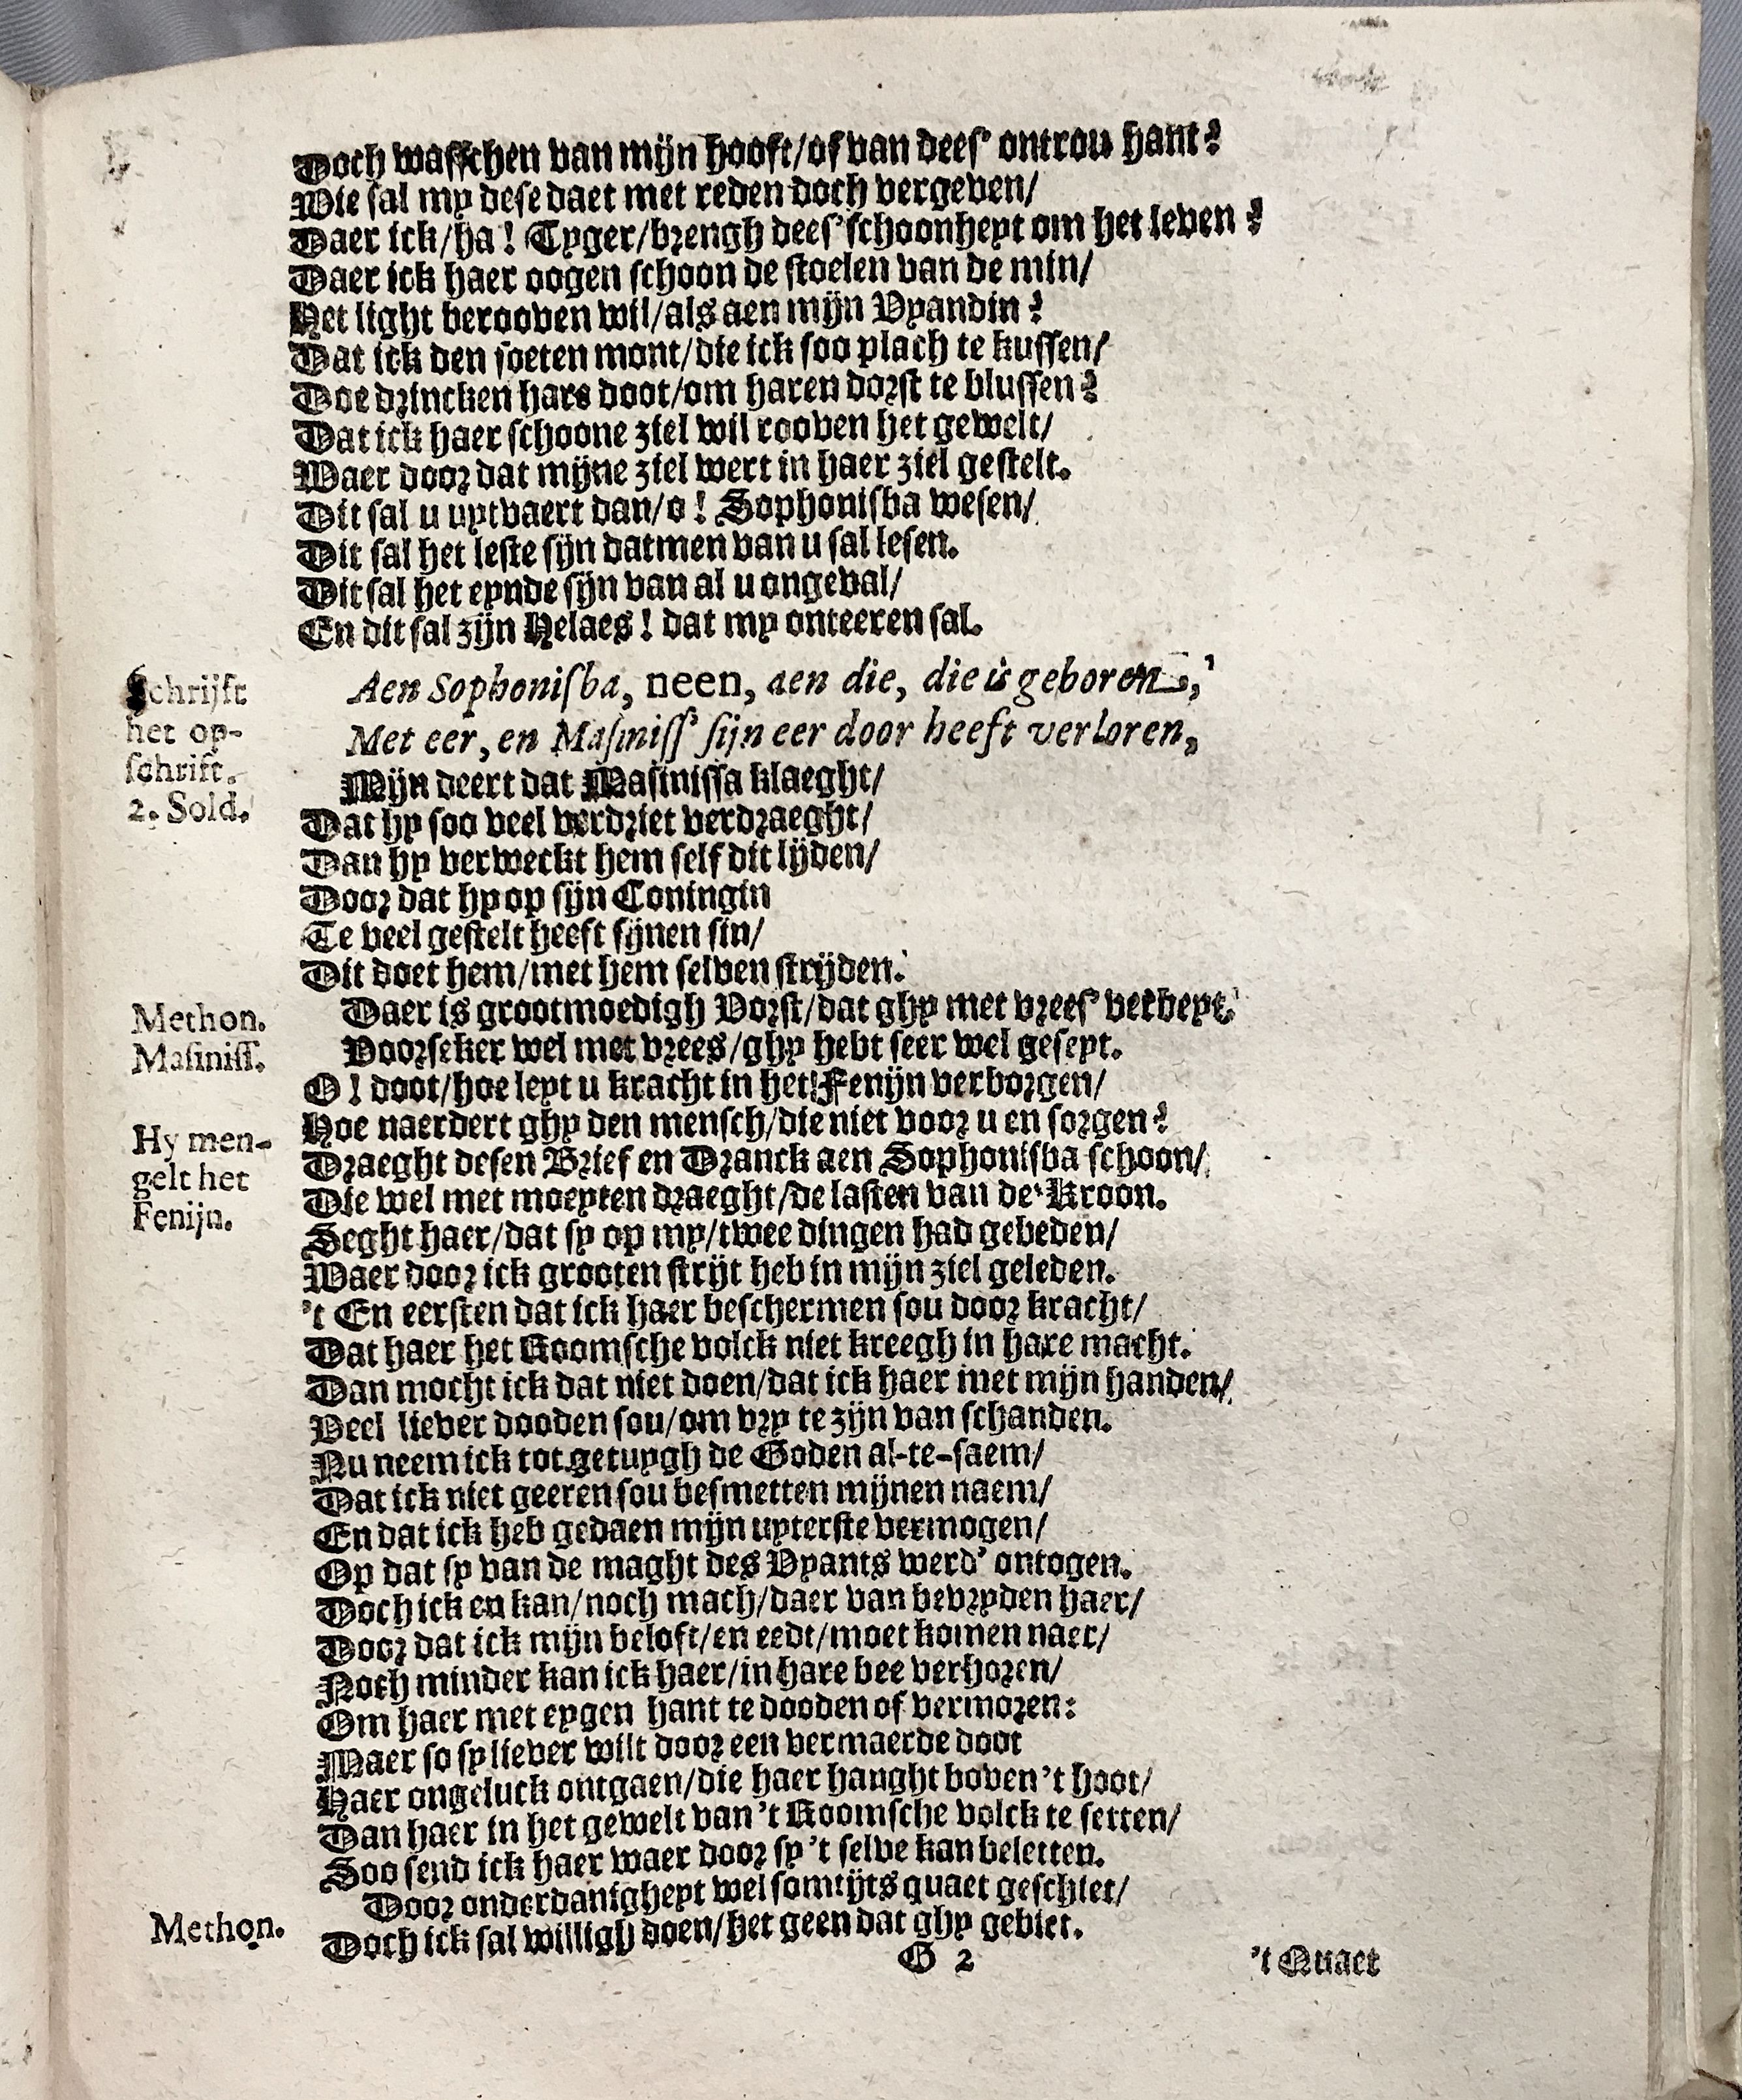 Doch wasschen van mijn hooft/of van dees' ontrou hant?
Wie sal my dese daet met reden doch vergeven/
Daer ick/ha! Tyger/brengh dees' schoonheyt om het leven?
Daer ick haer oogen schoon de stoelen van de min/
Het light berooven wil/als aen mijn Vyandin?
Dat ick den soeten mont/die ick soo plach te kussen/
Doe drincken hare doot/om haren dorst te blussen?
Dat ick haer schoone ziel wil rooven het gewelt/
Waer door dat mijne ziel wert in haer ziel gestelt.
Dit sal u uytvaert dan/o! Sophonisba wesen/
Dit sal het leste sijn datmen van u sal lesen.
Dit sal het eynde sijn van al u ongeval/
En dit sal zijn Helaes! dat my onteeren sal.
Schrijft
het op-
schrift.
Aen Sophonisba, neen, aen die, die is geboren,
Met eer, en Masiniss' sijn eer door heeft verloren,
2. Sold.
Mijn deert dat Masinissa klaeght/
Dat hy soo veel verdriet verdraeght/
Dan hy verweckt hem self dit lijden/
Door dat hy op sijn Coningin
Te veel gestelt heeft sijnen sin/
Dit doet hem/met hem selven strijden.
Methon.
Daer is grootmoedigh Vorst/dat ghy met vrees' verbeyt.
Masiniss.
Voorseker wel met vrees/ghy hebt seer wel geseyt.
O! doot/hoe leyt u kracht in het Fenijn verborgen/
Hoe naerdert ghy den mensch/die niet voor u en sorgen?
Hy men-
gelt het
Fenijn.
Draeght desen Brief en Dranck aen Sophonisba schoon/
Die wel met moeyten draeght/de lasten van de Kroon.
Seght haer/dat sy op my/twee dingen had gebeden/
Waer door ick grooten strijt heb in mijn ziel geleden.
't En eersten dat ick haer beschermen sou door kracht/
Dat haer het Roomsche volck niet kreegh in hare macht.
Dan mocht ick dat niet doen/dat ick haer met mijn handen/
Veel liever dooden sou/om vry te zijn van schanden.
Nu neem ick tot getuygh de Goden al-te-saem/
Dat ick niet geeren sou besmetten mijnen naem/
En dat ick heb gedaen mijn uyterste vermogen/
Op dat sy van de maght des Vyants werd' ontogen.
Doch ick en kan/noch mach/daer van bevryden haer/
Door dat ick mijn beloft/en eedt/moet komen naer/
Noch minder kan ick haer/in hare bee verhoren/
Om haer met eygen hant te dooden of vermoren:
Maer so sy liever wilt door een vermaerde doot
Haer ongeluck ontgaen/die haer hanght boven 't hoot/
Dan haer in het gewelt van 't Roomsche volck te setten/
Soo send ick haer waer door sy 't selve kan beletten.
Methon.
Door onderdanigheyt wel somtijts quaet geschiet/
Doch ick sal willigh doen/het geen dat ghy gebiet.
G 2
't Quaet